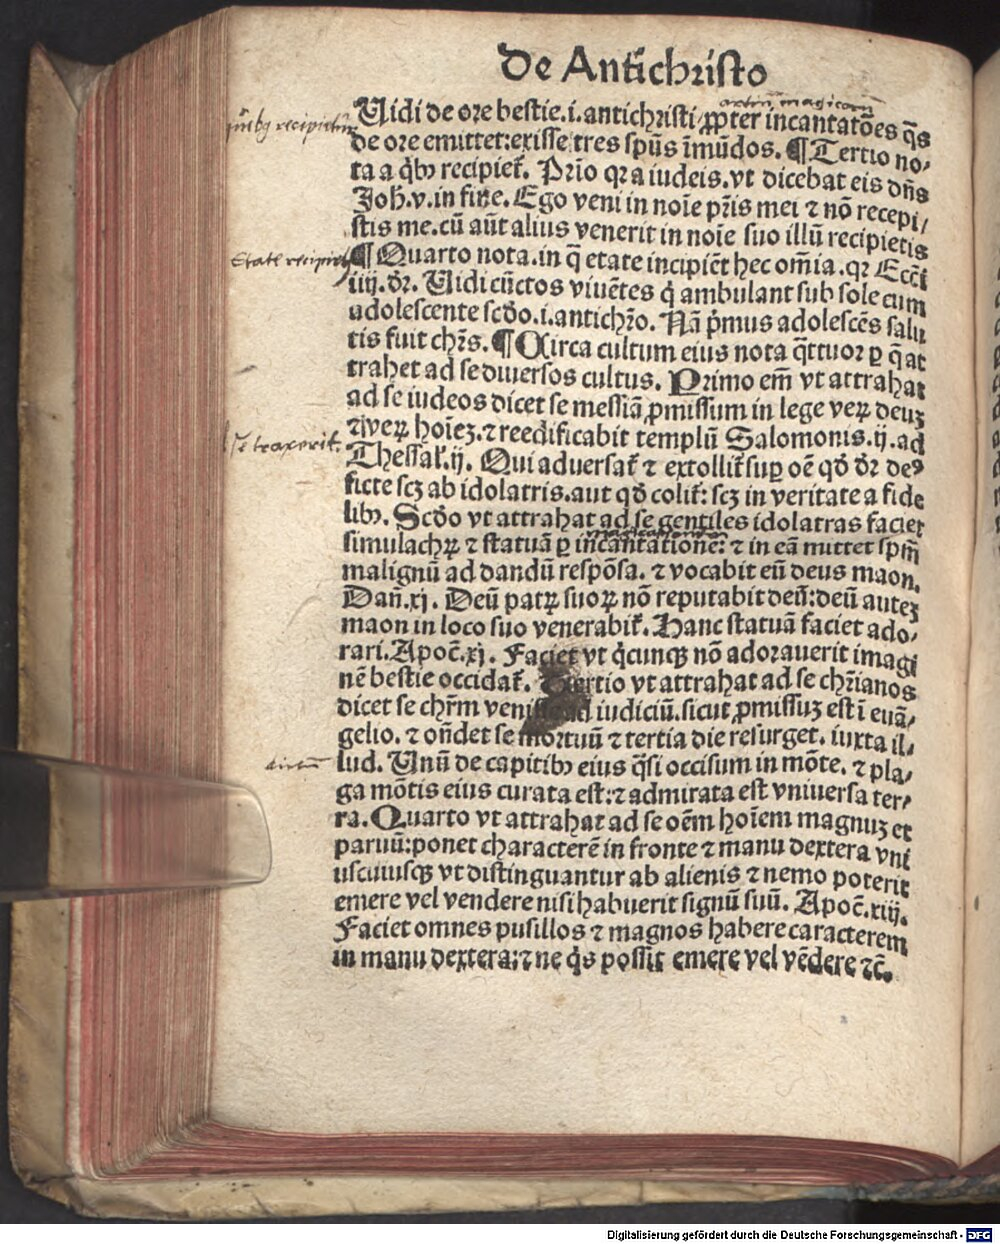 de Antichristo
artiū magicarū
Uidi de ore bestie.i.antichristi ꝓpter incantatōes q̄s
quibꝫ recipietur
de ore emittet:exisse tres spūs īmūdos. ¶ Tertio no-
ta a q̇bꝫ recipiet̄. Prīo qꝛ a iudeis.vt dicebat eis dn̄s
Joh.v.in fine. Ego veni in noīe pr̄is mei ⁊ nō recepi/
stis me.cū aūt alius venerit in noīe suo illū recipietis
Etate
¶ Quarto nota.in q̄ etate incipiēt hec om̄ia.qꝛ Ecc̄i
iiij.dꝛ. Uidi cūctos viuētes q̇ ambulant sub sole cum
adolescente scd̄o.i.antichr̄o. Nā ṗmus adolescēs salu
tis fuit chr̄s. ¶ Circa cultum eius nota q̄ttuor ꝑ q̄ at
trahet ad se diuersos cultus. Primo em̄ vt attrahat
ad se iudeos dicet se messiā ꝓmissum in lege veꝝ deuꝫ
se traxerit.
⁊ veꝝ hoīeꝫ.⁊ reedificabit templū Salomonis.ij.ad
Thessal̄.ij. Qui aduersat̄ ⁊ extollit̄ suꝑ oē qd̄ dꝛ deꝰ
ficte scꝫ ab idolatris.aut qd̄ colit̄: scꝫ in veritate a fide
libꝫ. Scd̄o vt attrahat ad se gentiles idolatras faciet
simulachꝝ ⁊ statuā ꝑ incantatione: ⁊ in eā mittet spm̄
malignū ad dandū respōsa. ⁊ vocabit eū deus maon.
Dan̄.xj. Deū patꝝ suoꝝ nō reputabit deū:deū auteꝫ
maon in loco suo venerabit̄. Hanc statuā faciet ado-
rari. Apoc̄.xj. Faciet vt q̇cunqꝫ nō adorauerit imagi
nē bestie occidat̄. Tertio vt attrahat ad se chr̄ianos
dicet se chr̄m venisse ad iudiciū.sicut ꝓmissuꝫ est ī euā-
gelio. ⁊ on̄det se mortuū ⁊ tertia die resurget. iuxta il-
dictū
lud. Unū de capitibꝫ eius q̄si occisum in mōte. ⁊ pla-
ga mōtis eius curata est:⁊ admirata est vniuersa ter-
ra. Quarto vt attrahat ad se oēm hoīem magnuꝫ et
paruū:ponet characterē in fronte ⁊ manu dextera vni
uscuiusqꝫ vt distinguantur ab alienis ⁊ nemo poterit
emere vel vendere nisi habuerit signū suū. Apoc̄.xiij.
Faciet omnes pusillos ⁊ magnos habere caracterem
in manu dextera:⁊ ne q̇s possit emere vel vēdere ⁊c̄.
Digitalisierung gefördert durch die Deutsche Forschungsgemeinschaft - DFG